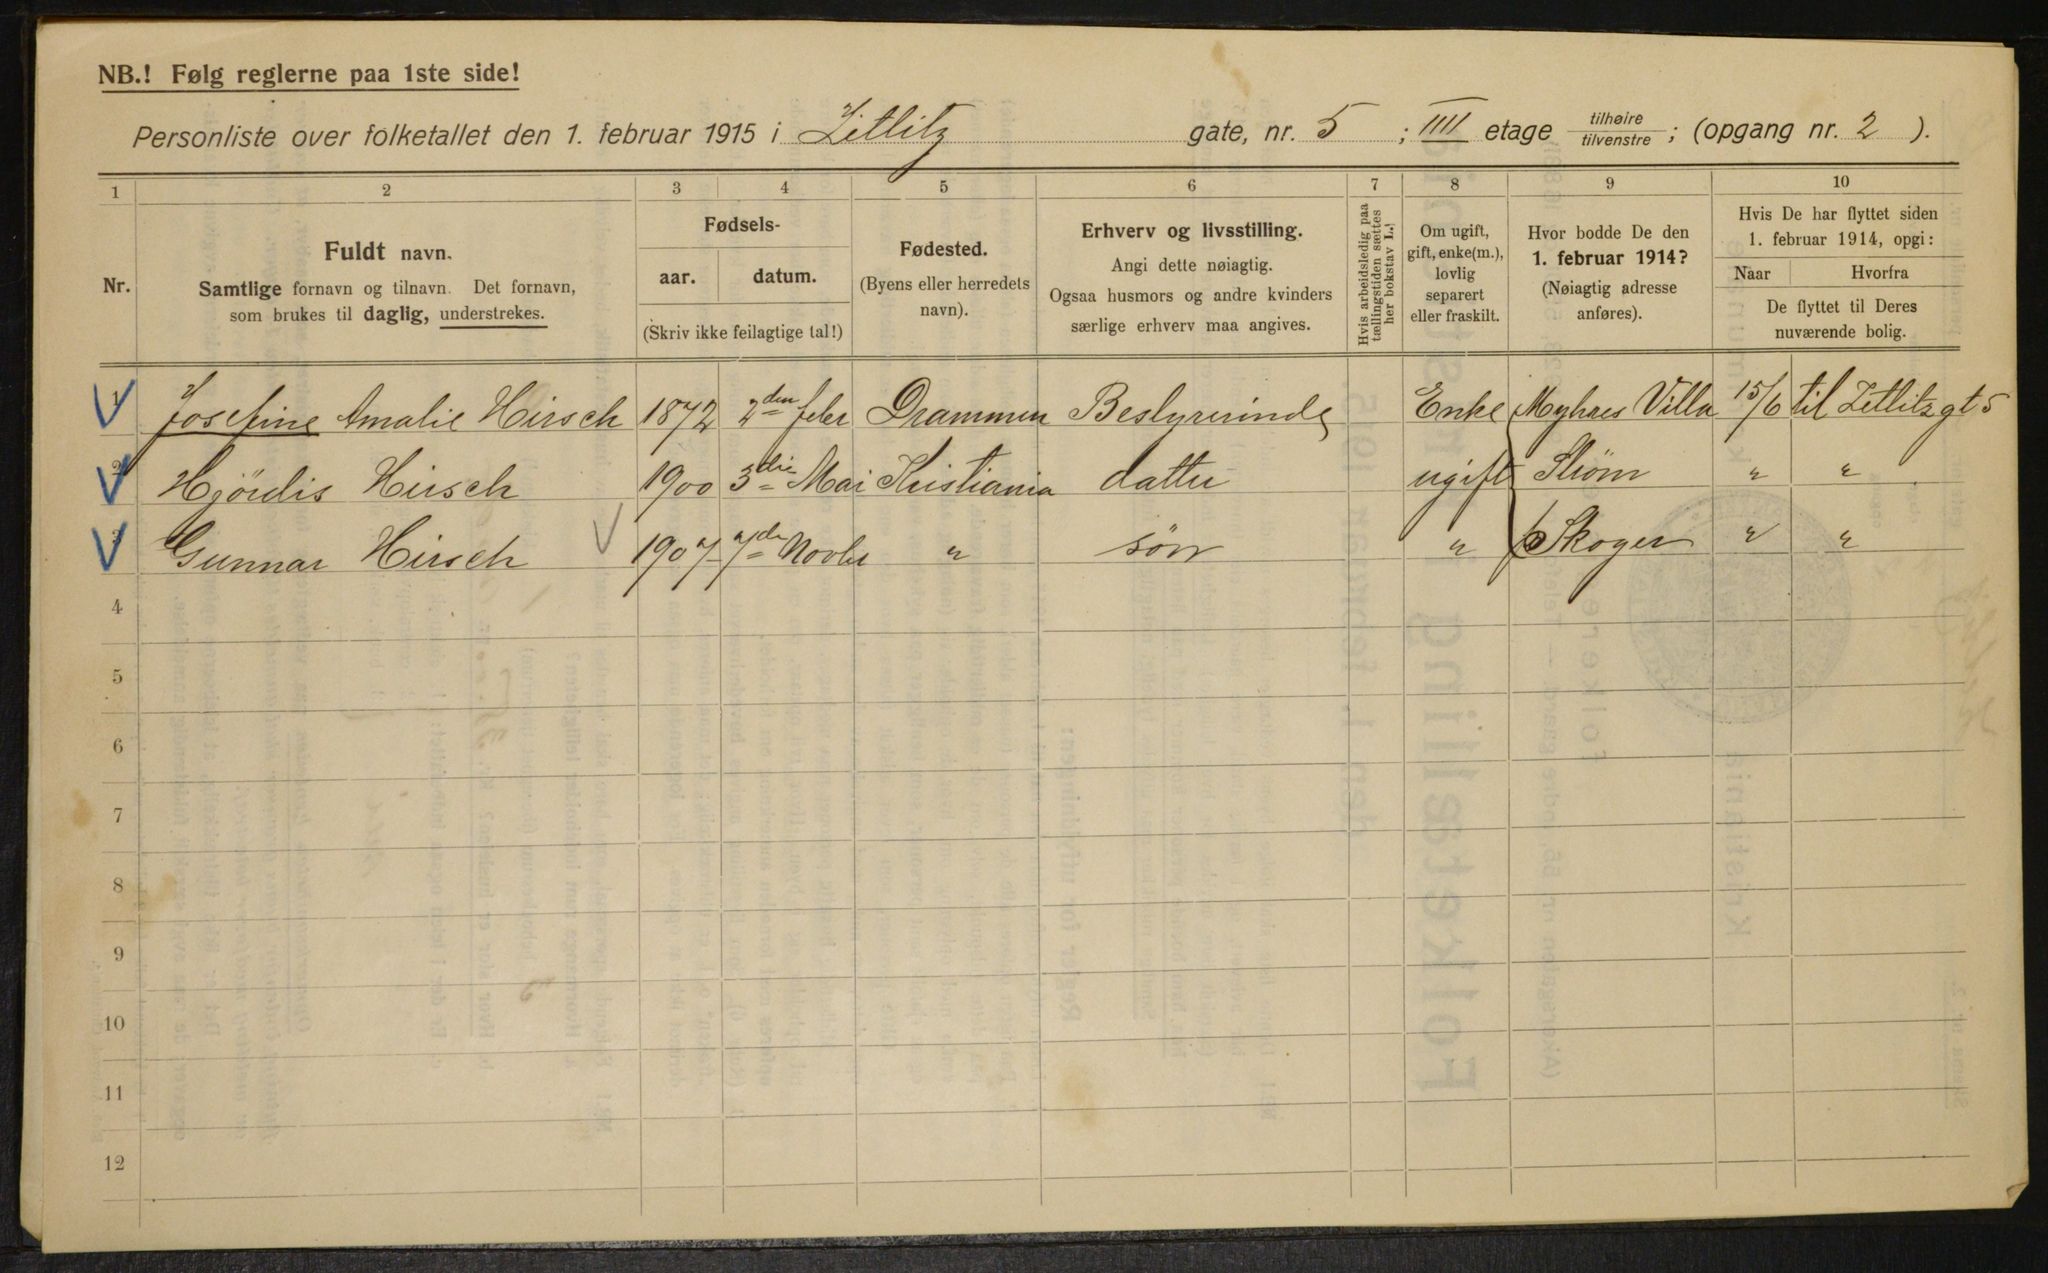 NB.! Følg reglerne paa 1ste side!
Personliste over folketallet den 1. februar 1915 i Zetlitz gate, nr. 5 ; IIII etage tilhøire/tilvenstre ; (opgang nr. 2 ).
1 2 3 4 5 6 7 8 9 10
Nr.
Fuldt navn.
Samtlige fornavn og tilnavn. Det fornavn,
som brukes til daglig, understrekes.
Fødsels-
aar. datum.
(Skriv ikke feilagtige tal!)
Fødested.
(Byens eller herredets
navn).
Erhverv og livsstilling.
Angi dette nøiagtig.
Ogsaa husmors og andre kvinders
særlige erhverv maa angives.
Hvis arbeidsledig paa
tællingstiden sættes
her bokstav L.!
Om ugift,
gift, enke(m.),
lovlig
separert
eller fraskilt.
Hvor bodde De den
1. februar 1914?
(Nøiagtig adresse
anføres).
Hvis De har flyttet siden
1. februar 1914, opgi:
Naar Hvorfra
De flyttet til Deres
nuværende bolig.
1 Josefine Amalie Hirsch 1872 2den feber Drammen Bestyrerinde Enke Myhres Villa 15/6 til Zetlitzgt 5
2 Hjördis Hirsch 1900 3die Mai Kristiania datter ugift Strøm " "
3 Gunnar Hirsch 1907 7de Novbr " sön " Skoger " "
4
5
6
7
8
9
10
11
12